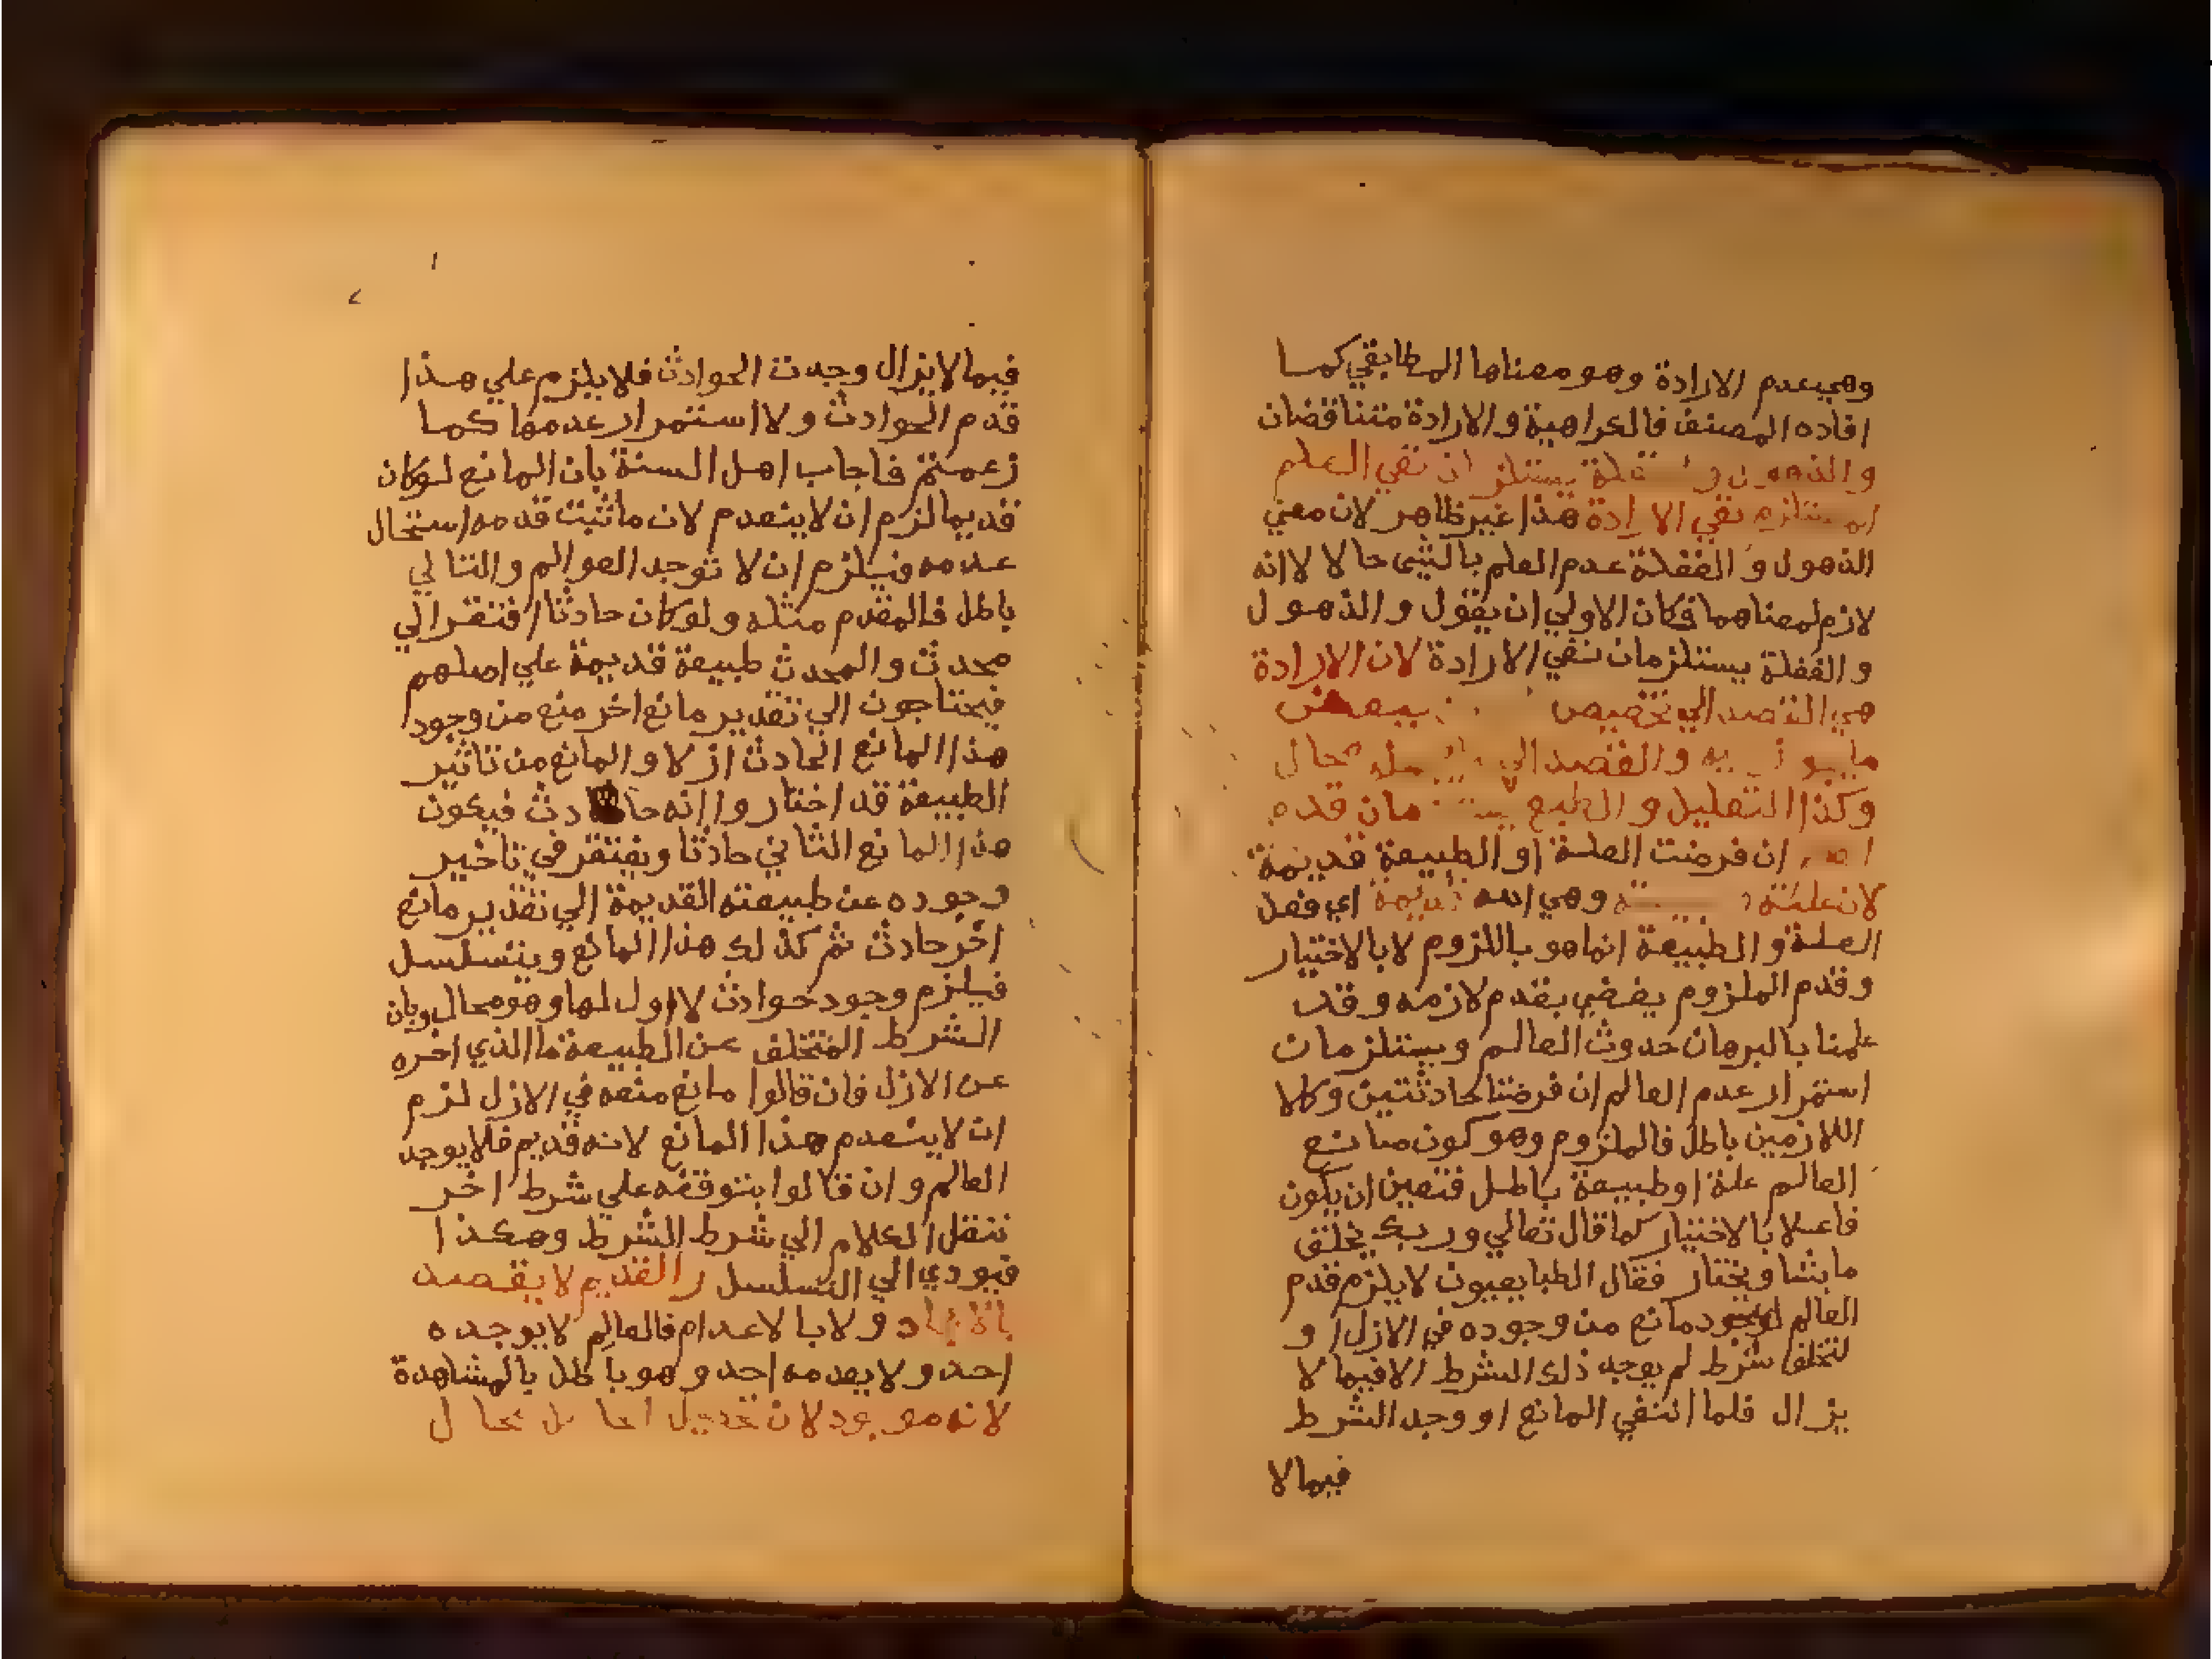 وهي عدم الارادة وهو معناها المطابقي كما
افاده المصنف فالكراهية والارادة متناقضان
والذهول و غفلة يستلزمان نفي العلم
المستلزم نفي الارادة هذا غير ظاهر لان معني
الذهول و الغفلة عدم العلم بالشي حالا لا انه
لازم لمعناهما فكان الاولي ان يقول والذهول
والغفلة يستلزمان نفي الارادة لان الارادة
هي القصد الي تخصيص ببعض
ما يجوز عليه والقصد الي محال
وكذا التعليل والطبع يستلزمان قدم
ان فرضت العلة او الطبيعة قديمة
لان علته وهي الله قديمة اي فعل
العلة والطبيعة انما هو باللزوم لا بالاختيار
وقدم الملزوم يقضي بقدم لازمه وقد
علمنا بالبرهان حدوث العالم ويستلزمان
استمرار عدم العالم ان فرضتا حادثتين وكلا
اللازمين باطل فالملزوم وهو كون صانع
العالم علة او طبيعة باطل فتعين ان يكون
فاعلا بالاختيار كما قال تعالي وربك يخلق
ما يشا ويختار فقال الطبايعيون لا يلزم قدم
العالم لوجود مانع من وجوده في الازل او
لتخلف شرط لم يوجد ذلك الشرط الا فيما لا
يزال فلما انتفي المانع او وجد الشرط
فيما لا
فيما لا يزال وجدت الحوادث فلا يلزم علي هذا
قدم الحوادث ولا استمرار عدمها كما
زعمتم فاجاب اهل السنة بان المانع لو كان
قديما لزم ان لا ينعدم لان ما ثبت قدمه استحال
عدمه فيلزم ان لا توجد العوالم والتالي
باطل فالمقدم مثله ولو كان حادثا افتقر الي
محدث والمحدث طبيعة قديمة علي اصلهم
فيحتاجون الي تقدير مانع اخر منع من وجود
هذا المانع الحادث ازلا والمانع من تاثير
الطبيعة قد اختاروا انه حا دث فيكون
هذا المانع الثاني حادثا ويفتقر في تاخير
وجوده عن طبيعته القديمة الي تقدير مانع
اخر حادث ثم كذلك هذا المانع ويتسلسل
فيلزم وجود حوادث لا اول لها وهو محال وبان
الشرط المتخلف عن الطبيعة ما الذي اخره
عن الازل فان قالوا مانع منعه في الازل لزم
ان لا ينعدم هذا المانع لانه قديم فلا يوجد
العالم وان قالوا بتوقفه علي شرط اخر
ننقل الكلام الي شرط الشرط وهكذا
فيودي الي التسلسل والقديم لا يقصد
بالايجاد ولا بالاعدام فالعالم لا يوجده
احد ولا يعدمه احد وهو باطل بالمشاهدة
لانه موجود لان تحصيل الحاصل محال